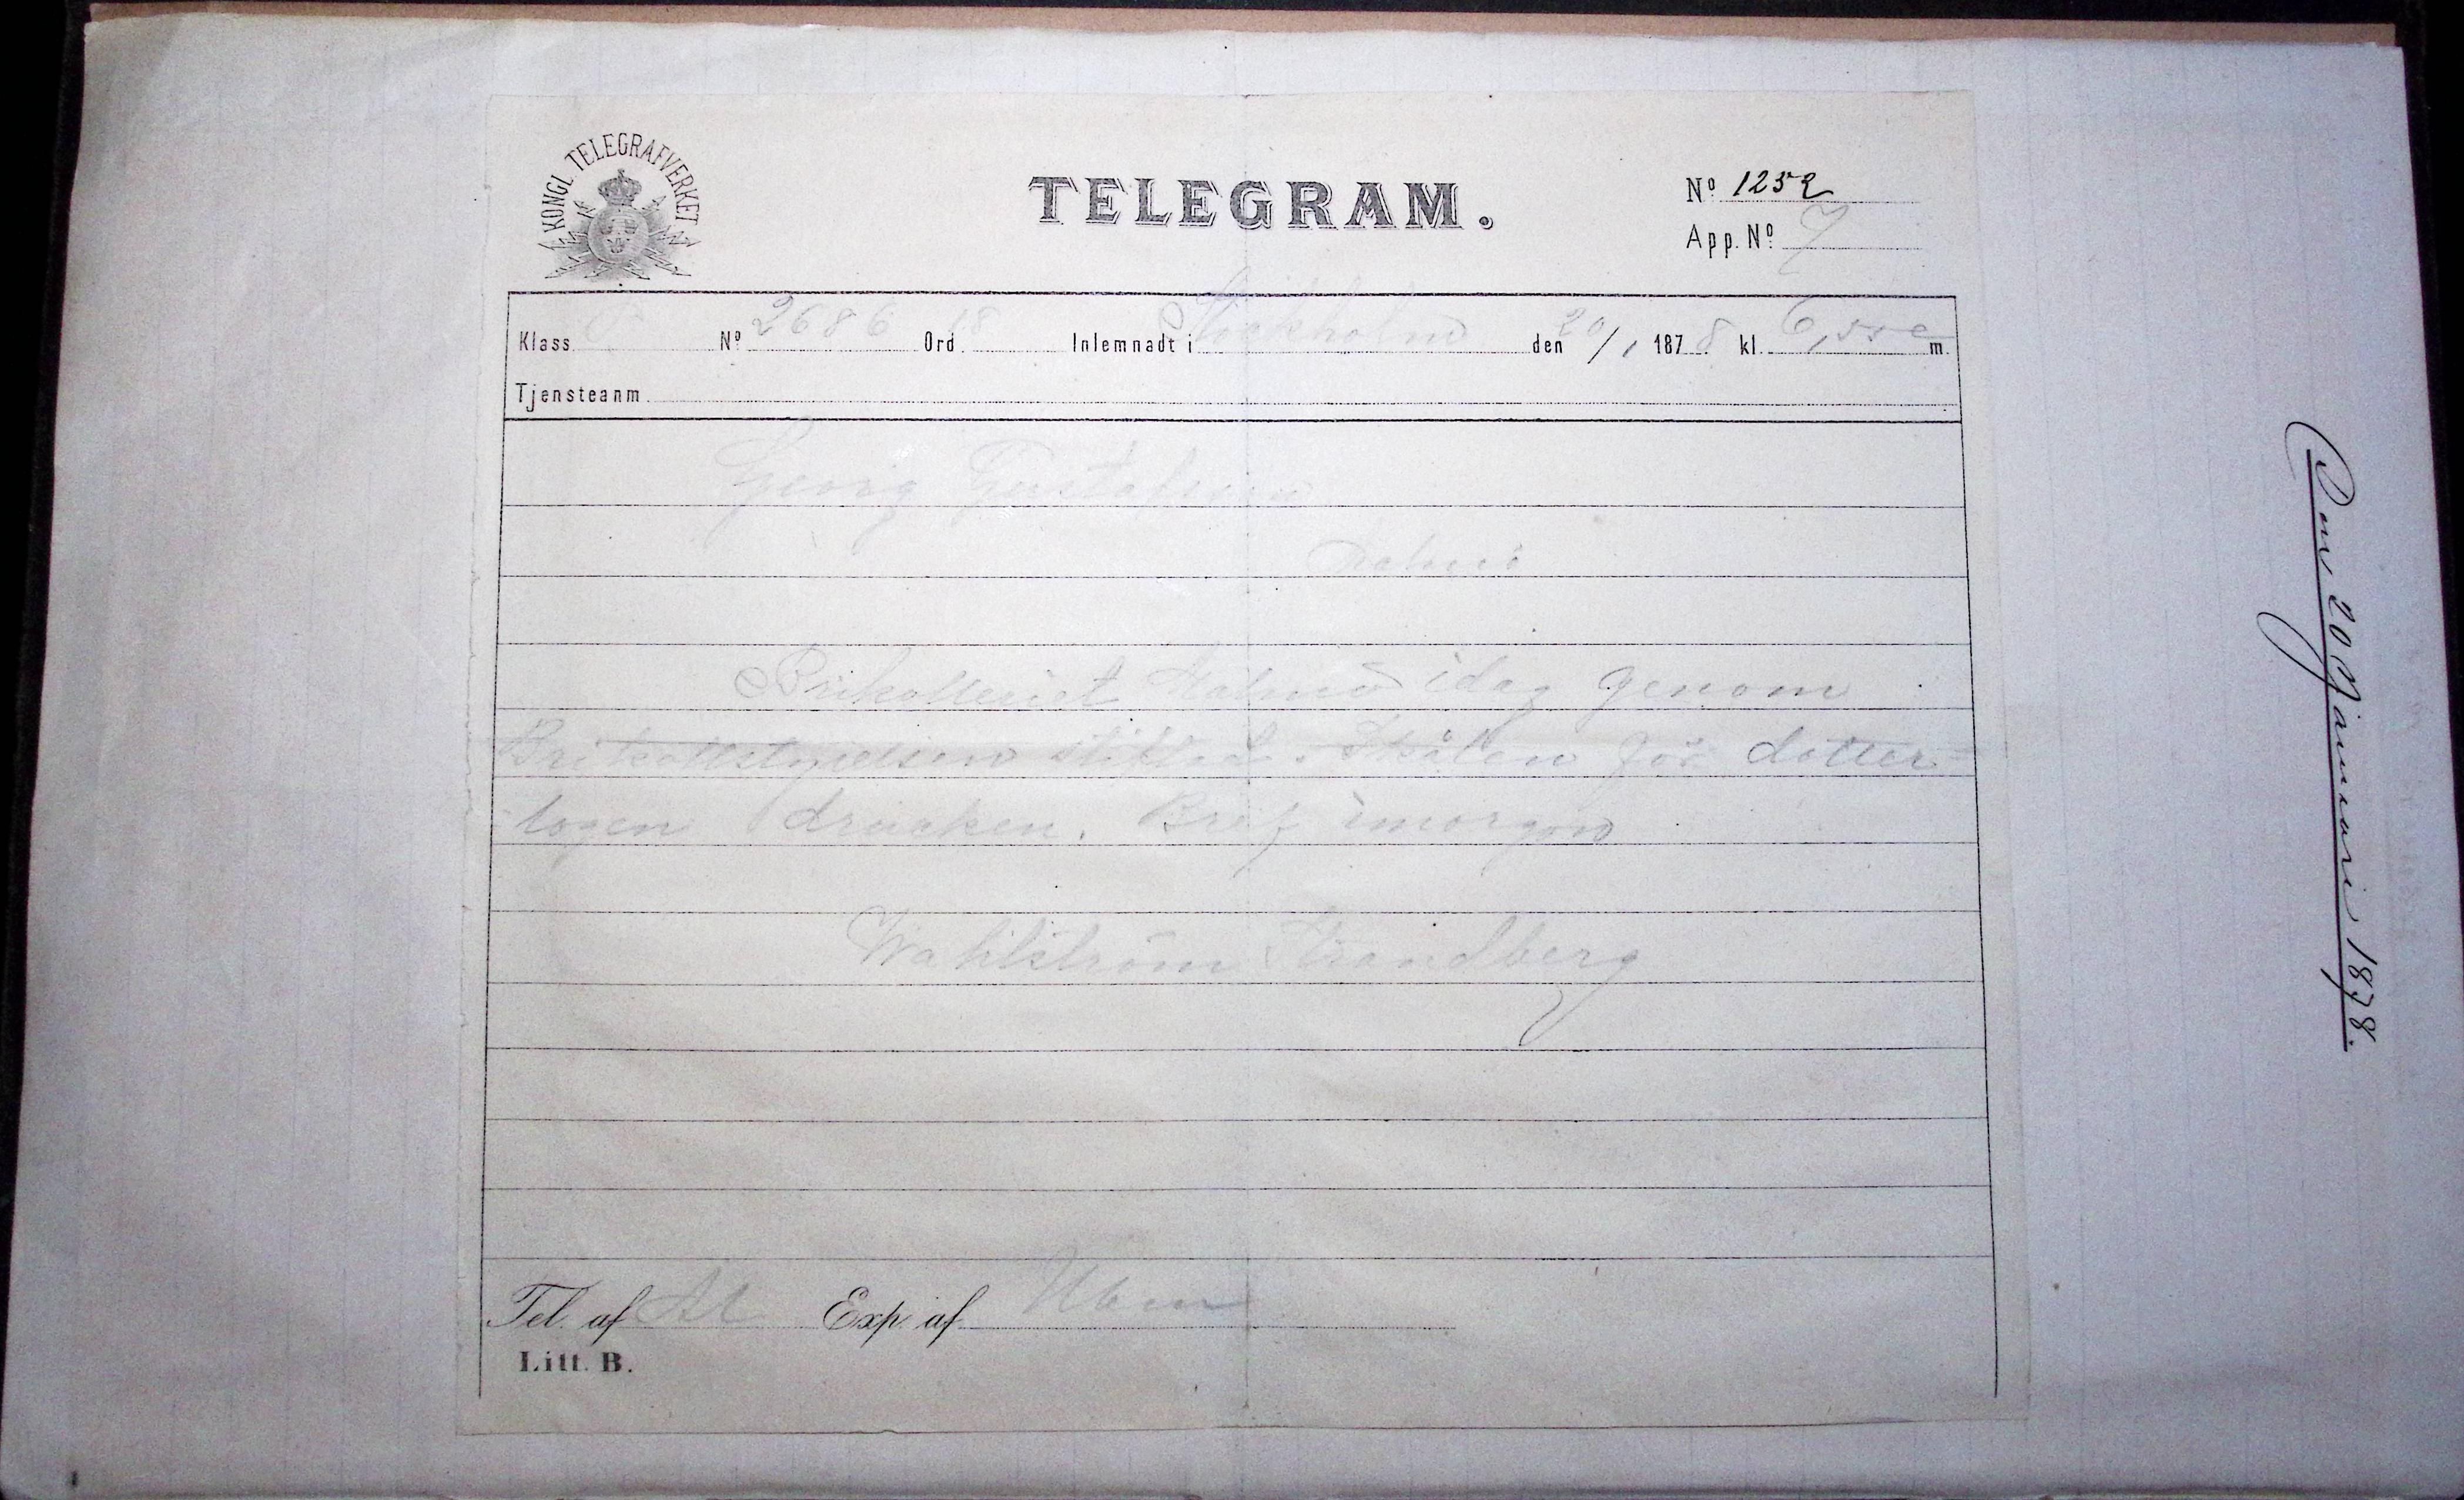 KONGL. TELEGRAFVERKET
TELEGRAM.
Nº 1252
App. Nº 7
Klass Nº 2686 Ord 18 Inlemnadt i Stockholm den 20/1 1878 kl. 6,55 e m.
Tjensteanm.
Georg Gustafsson
Malmö
Brikolleriet Malmö idag genom
Brikollstyrelsen stiftad. Skålen för dotter=
logen drucken. Bref imorgon
Wahlström Strandberg
Tel. af Exp. af
Litt. B.
Den 20 Januari 1878.